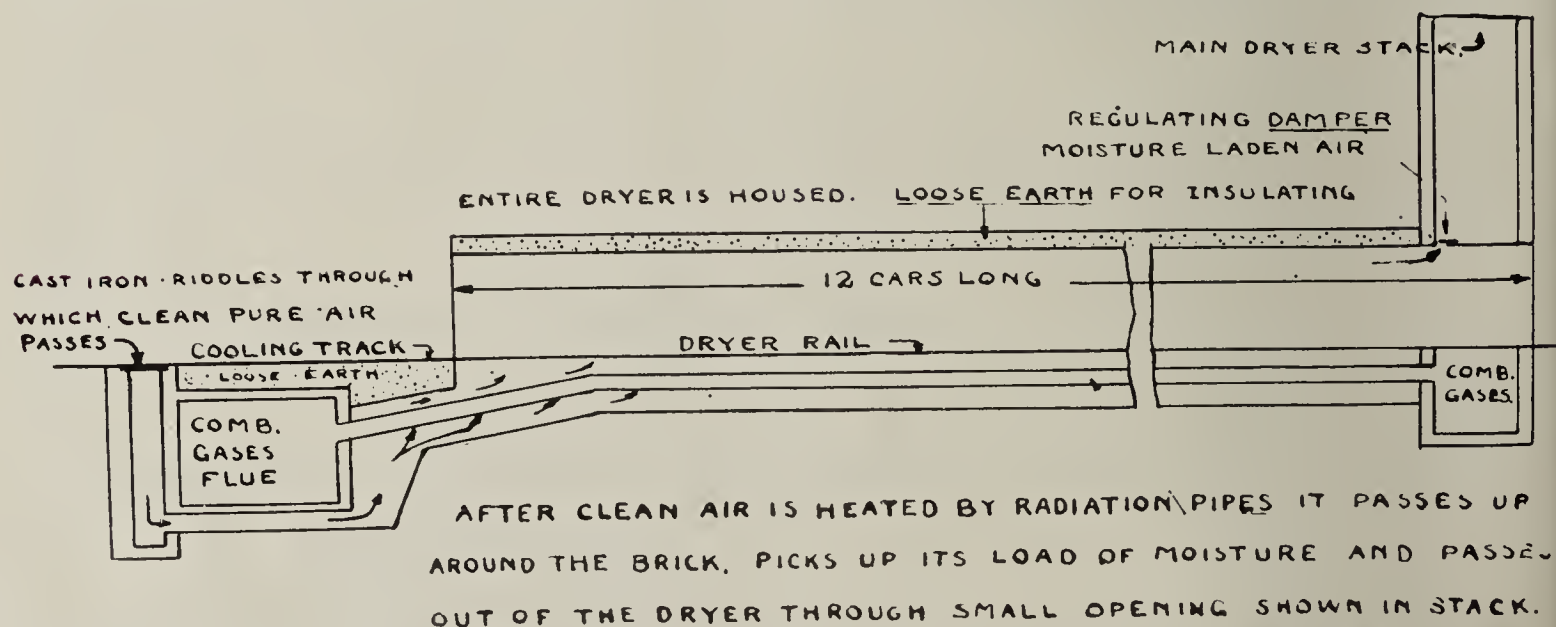 MAIN DRYER STACK.
REGULATING DAMPER
MOISTURE LADEN AIR
ENTIRE DRYER IS HOUSED. LOOSE EARTH FOR INSULATING
12 CARS LONG
CAST IRON RIDDLES THROUGH
WHICH CLEAN PURE AIR
PASSES
COOLING TRACK
LOOSE EARTH
DRYER RAIL
COMB.
GASES
FLUE
COMB.
GASES.
AFTER CLEAN AIR IS HEATED BY RADIATION PIPES IT PASSES UP
AROUND THE BRICK, PICKS UP ITS LOAD OF MOISTURE AND PASSES
OUT OF THE DRYER THROUGH SMALL OPENING SHOWN IN STACK.